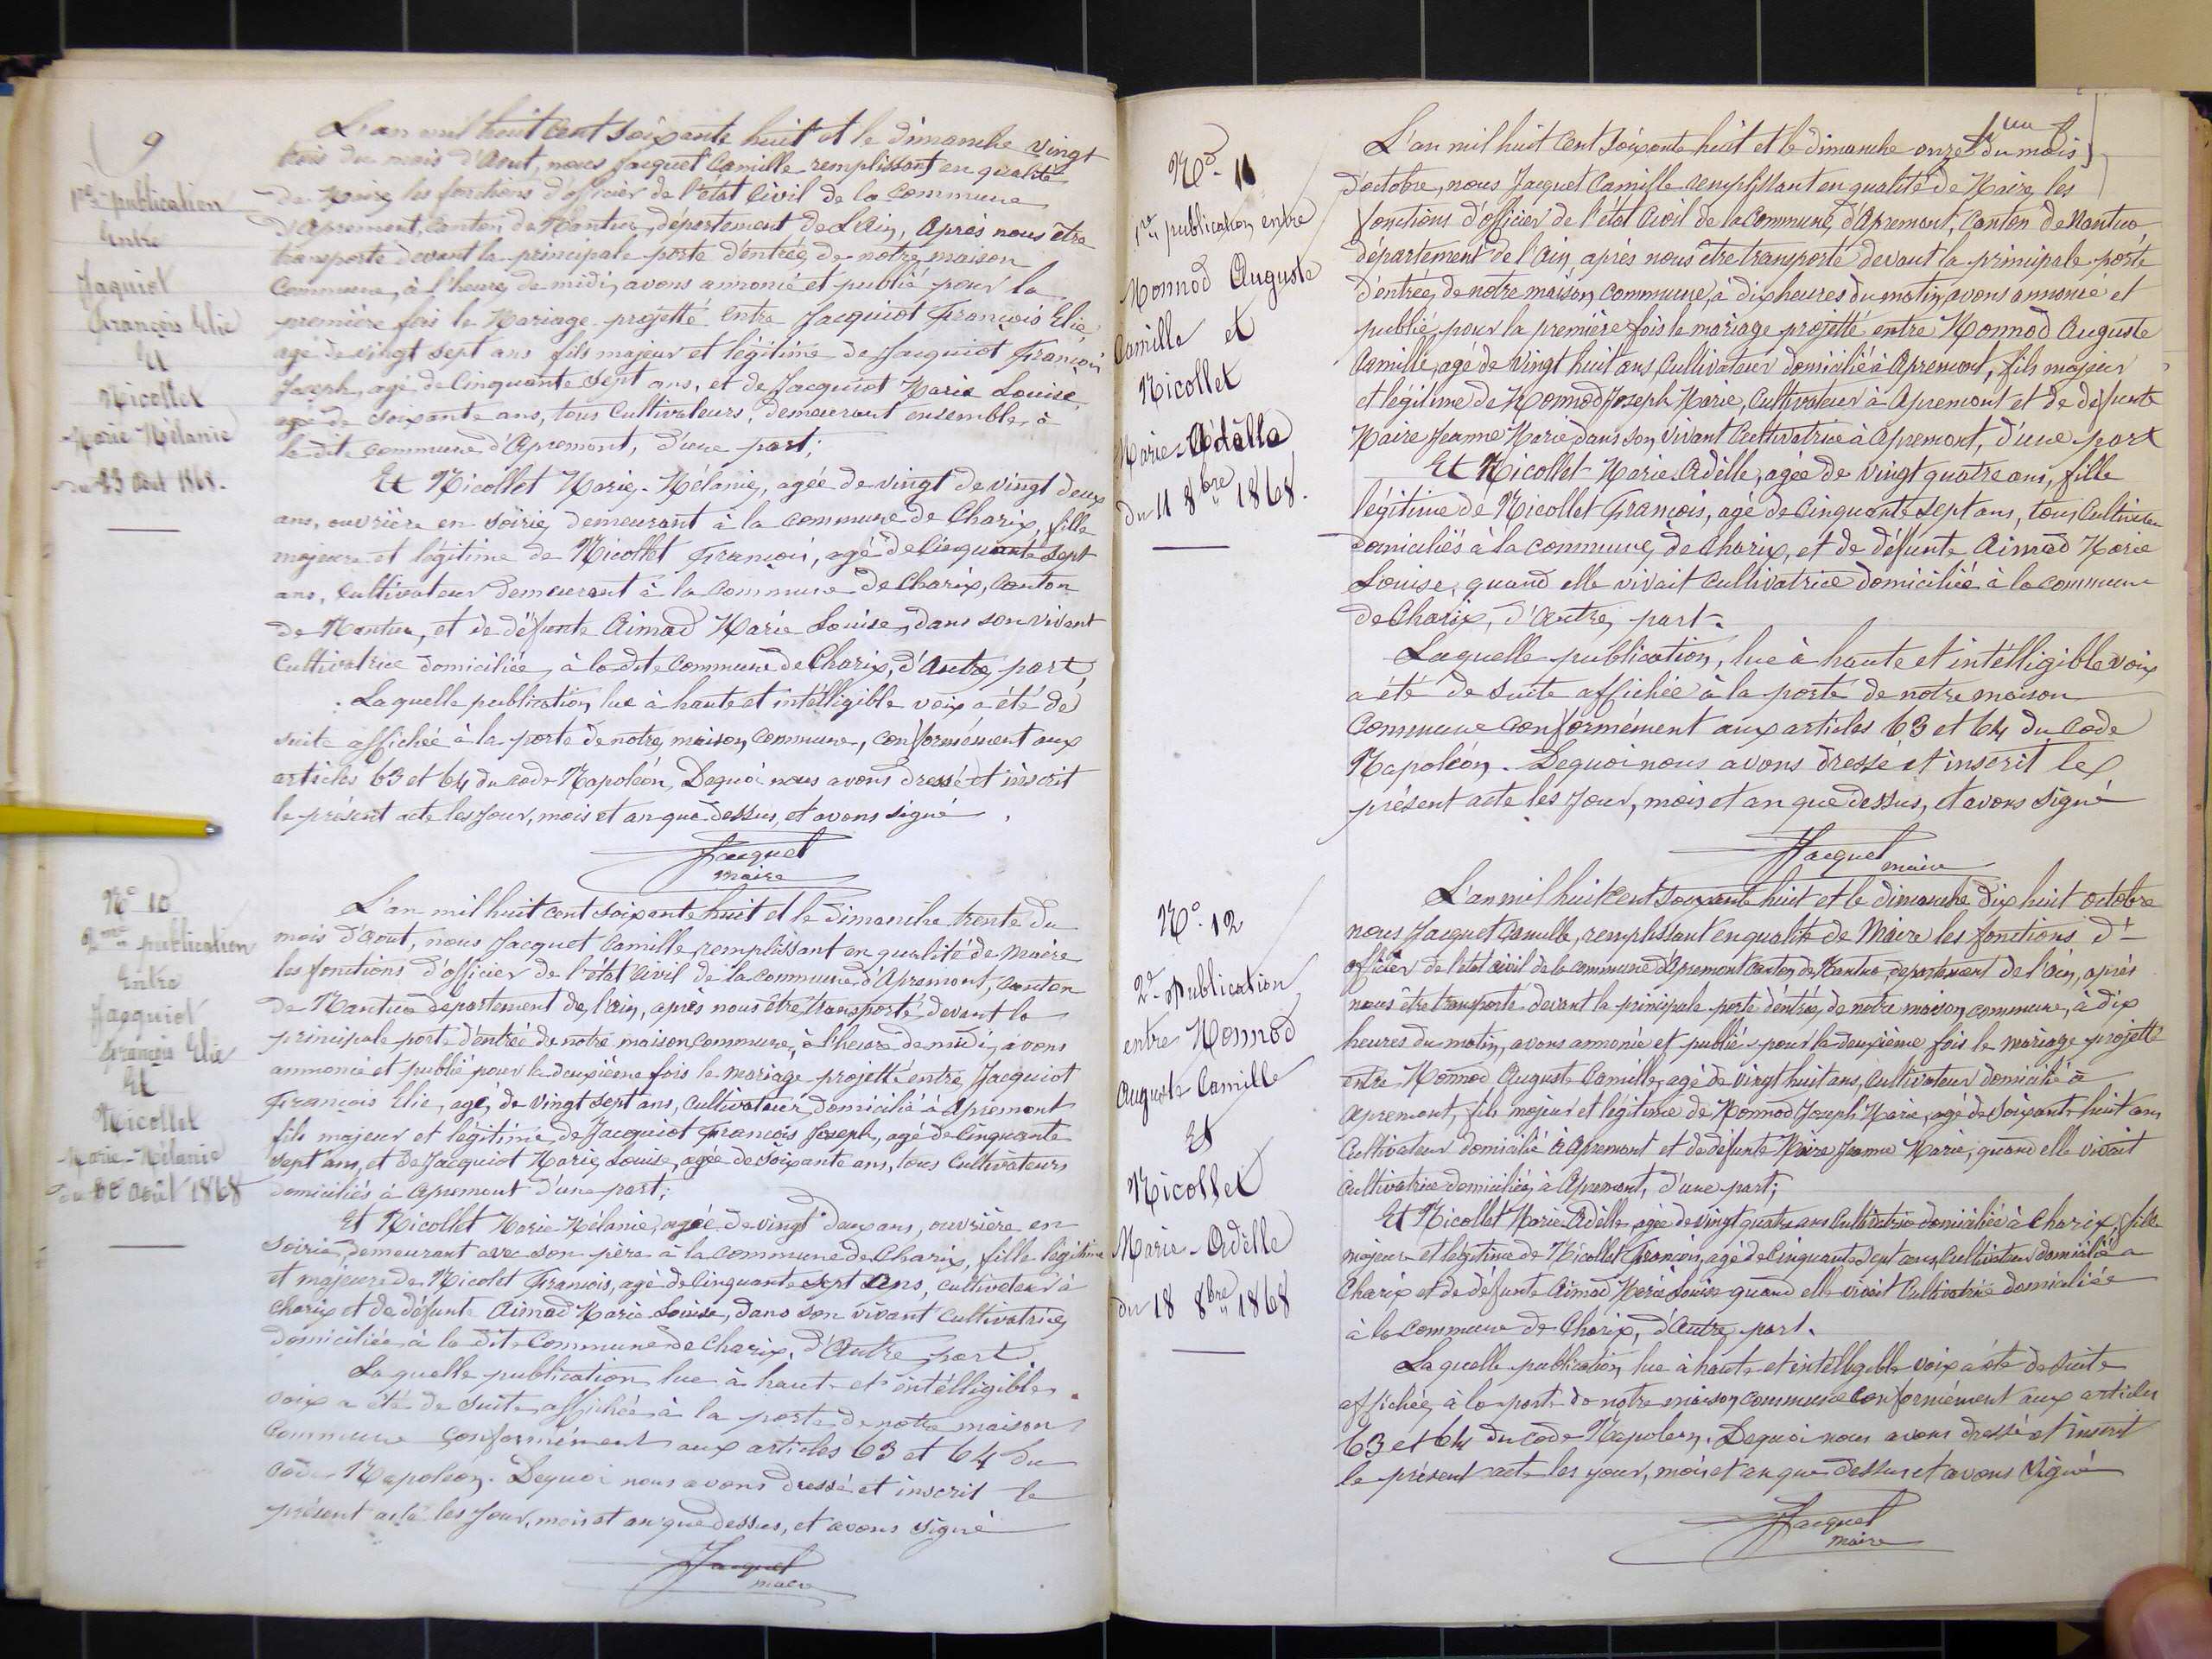 9
1re publication
Entre
Jaquiot
François Elie
Et
Nicollet
Marie Mélanie
du 23 Aout 1868.
L'an mil huit cent soixante huit et le dimanche vingt
trois du mois d'Aout, nous Jacquet Camille remplissant en qualité
de Maire les fonctions d'officier de l'état Civil de la Commune
d'Apremont, Canton de Nantua, département de L'Ain, Après nous être
transporté devant la principale porte d'entrée de notre maison
Commune, à l'heure de midi, avons annoncé et publié pour la
première fois le Mariage projetté entre Jacquiot François Elie
agé de vingt sept ans fils majeur et légitime de Jacquiot François
Joseph, agé de Cinquante sept ans, et de Jacquiot Marie Louise,
agée de soixante ans, tous Cultivateurs, demeurant ensemble à
la dite commune d'Apremont, d'une part;
Et Nicollet Marie-Mélanie, agée de vingt de vingt deux
ans, ouvrière en soirie, demeurant à la commune de Charix, fille
majeure et légitime de Nicollet François, agé de Cinquante sept
ans, Cultivateur demeurant à la commune de Charix, Canton
de Nantua, et de défunte Aimad Marie Louise, dans son vivant
Cultivatrice domiciliée, à la dite Commune de Charix, d'Autre part,
Laquelle publication, lue à haute et intélligible voix a été de
suite affichée à la porte de notre maison Commune, conformément aux
articles 63 et 64 du code Napoléon, Dequoi nous avons dressé et inscrit
le présent acte les jour, mois et an que dessus, et avons signé
Jacquet
maire
No 10
2me publication
Entre
Jacquiot
François Elie
Et
Nicollet
Marie-Mélanie
du 30 Août 1868
L'an mil huit cent soixante huit et le dimanche trente du
mois d'Aout, nous Jacquet Camille, remplissant en qualité de maire
les fonctions d'officier de l'état civil de la commune d'Apremont, canton
de Nantua département de l'Ain, après nous être transporté devant la
principale porte d'entrée de notre maison commune, à l'heure de midi, avons
annoncé et publié pour la deuxième fois le mariage projetté entre Jacquiot
François Elie, agé de vingt sept ans, cultivateur domicilié à Apremont
fils majeur et légitime de Jacquiot François Joseph, agé de Cinquante
sept ans, et de Jacquiot Marie Louise, agée de soixante ans, tous Cultivateurs
domiciliés à Apremont d'une part;
Et Nicollet Marie Mélanie, agée de vingt deux ans, ouvrière en
soirie, demeurant avec son père à la commune de Charix, fille légitime
et majeure de Nicolet François, agé de Cinquante sept Ans, cultivateur à
Charix et de défunte Aimad Marie Louise, dans son vivant Cultivatrice,
domiciliée à la dite Commune de Charix, d'Autre part
Laquelle publication lue à haute et intélligible
voix a été de suite affichée à la porte de notre maison
Commune Conformément aux articles 63 et 64 du
code Napoléon. Dequoi nous avons dressé et inscrit le
présent acte les jour, mois et an que dessus, et avons signé
Jacquet
maire
No 11
1re publication entre
Monnod Auguste
Camille et
Nicollet
Marie-Adèlle
du 11 8bre 1868.
L'an mil huit Cent soixante huit et le dimanche onze du mois
d'octobre, nous Jacquet Camille remplissant en qualité de Maire, les
fonctions d'officier de l'état Civil de la Commune, d'Apremont, Canton de Nantua,
département de l'Ain, après nous être transporté devant la principale porte
d'entrée, de notre maison, commune, à dix heures du matin, avons annoncé et
publié, pour la première fois le mariage projetté entre Monnod Auguste
Camille, agé de Vingt huit ans, Cultivateur domicilié à Apremont, fils majeur
et légitime de Monnod Joseph Marie, Cultivateur à Apremont et de défunte
Maire Jeanne Marie, dans son, vivant Cultivatrice à Apremont, d'une part
Et Nicollet Marie Adèlle, agée de vingt quatre ans, fille
légitime de Nicollet François, agé de Cinquante sept ans, tous Cultivateur
domiciliés à la commune, de Charix, et de défunte Aimad Marie
Louise, quand elle vivait cultivatrice domiciliée à la commune
de Charix, d'Autre, part.
Laquelle publication, lue à haute et intélligible voix
a été de suite affichée à la porte de notre maison
Commune conformément aux articles 63 et 64 du code
Napoléon. Dequoi nous avons dressé et inscrit le
présent acte les jour, mois et an que dessus, et avons signé
Jacquet
maire
No. 12
2e publication
entre Monnod
Auguste Camille
Et
Nicollet
Marie-Adèlle
du 18 8bre 1868
L'an mil huit cent soixante huit et le dimanche dix huit octobre
nous Jacquet Camille, remplissant en qualité de Maire les fonctions d'-
officier de l'état civil de la commune d'Apremont canton de Nantua, département de l'Ain, après
nous être transporté devant la principale porte d'entrée, de notre maison commune, à dix
heures du matin, avons annoncé et publié pour la deuxième fois le mariage projetté
entre Monnod Auguste Camille, agé de vingt huit ans, Cultivateur domicilié à
Apremont, fils majeur et légitime de Monnod Joseph Marie, agé de soixante huit ans
Cultivateur domicilié à Apremont et de défunte Maire Jeanne Marie, quand elle vivait
cultivatrice domiciliée, à Apremont, d'une part;
Et Nicollet Marie Adèlle agée de vingt quatre ans Cultivatrice domiciliée à Charix, fille
majeure et légitime de Nicollet François, agé de Cinquante sept ans, Cultivateur domicilié à
Charix et de défunte Aimad Marie Louise quand elle vivait Cultivatrice domiciliée
à la Commune de Charix, d'Autre part.
Laquelle publication, lue à haute et intélligible voix a été de suite
affichée, à la porte de notre maison commune conformément aux articles
63 et 64 du code Napoléon. Dequoi nous avons dressé et inscrit
le présent acte les jour, mois et an que dessus et avons signé
Jacquet
maire